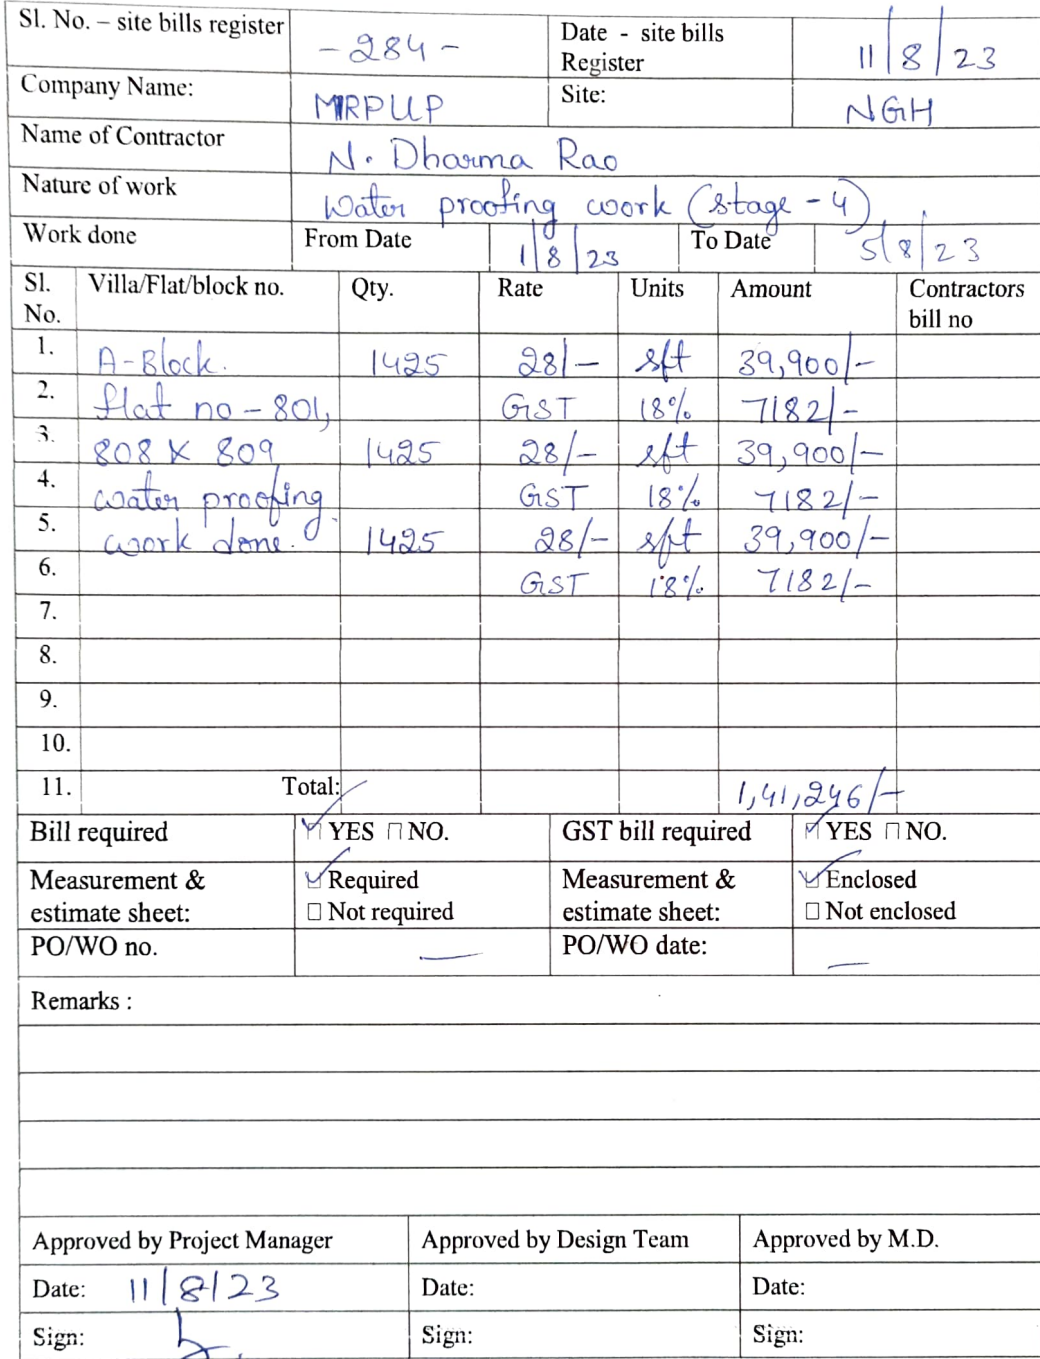 Sl. No. – site bills register - 284 - Date - site bills Register 11/8/23
Company Name: MRPLLP Site: NGH
Name of Contractor N. Dharma Rao
Nature of work Water proofing work (stage - 4)
Work done From Date 1/8/23 To Date 5/8/23
Sl. No. Villa/Flat/block no. Qty. Rate Units Amount Contractors bill no
1. A-Block. 1425 28/- sft 39,900/-
2. flat no - 801, GST 18% 7182/-
3. 808 & 809 1425 28/- sft 39,900/-
4. water proofing GST 18% 7182/-
5. work done. 1425 28/- sft 39,900/-
6. GST 18% 7182/-
7.
8.
9.
10.
11. Total: 1,41,246/-
Bill required ☑ YES □ NO. GST bill required ☑ YES □ NO.
Measurement & estimate sheet: ☑ Required □ Not required Measurement & estimate sheet: ☑ Enclosed □ Not enclosed
PO/WO no. — PO/WO date: —
Remarks :
Approved by Project Manager Approved by Design Team Approved by M.D.
Date: 11/8/23 Date: Date:
Sign: Sign: Sign: